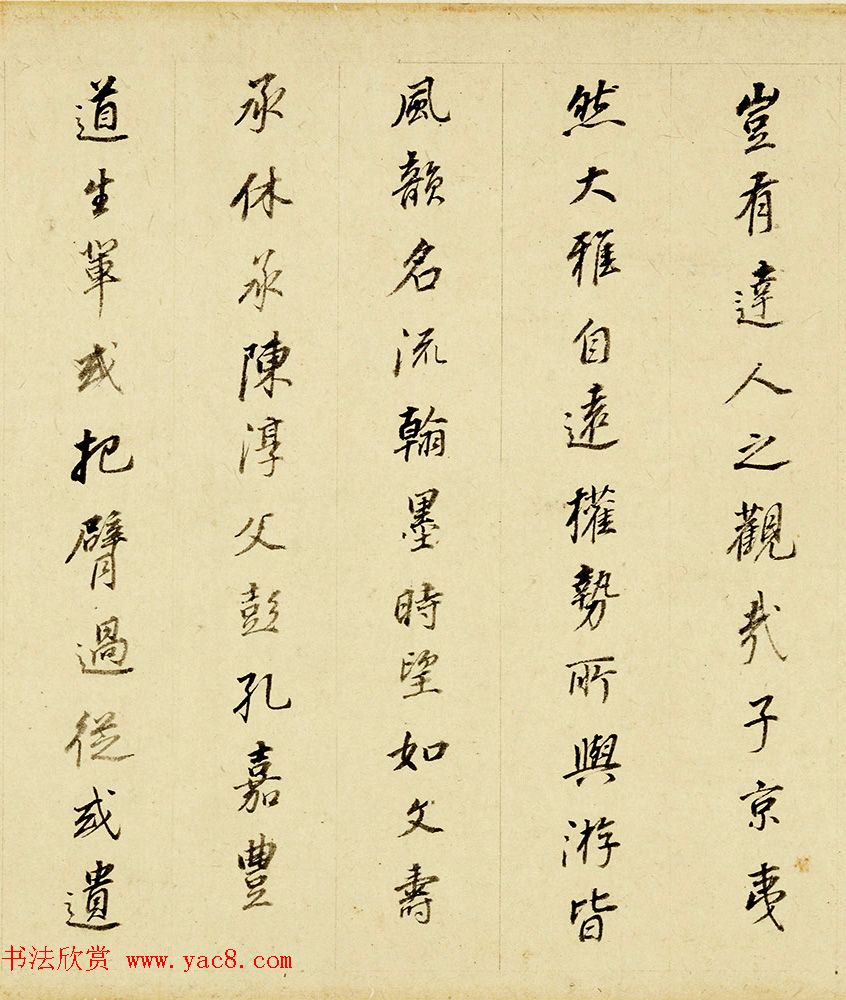 豈有達人之觀哉子京夷
然大雅自遠權勢所與游皆
風韻名流翰墨時望如文壽
承休承陳淳父彭孔嘉豊
道生軰或把臂過從或遺
书法欣赏 www.yac8.com